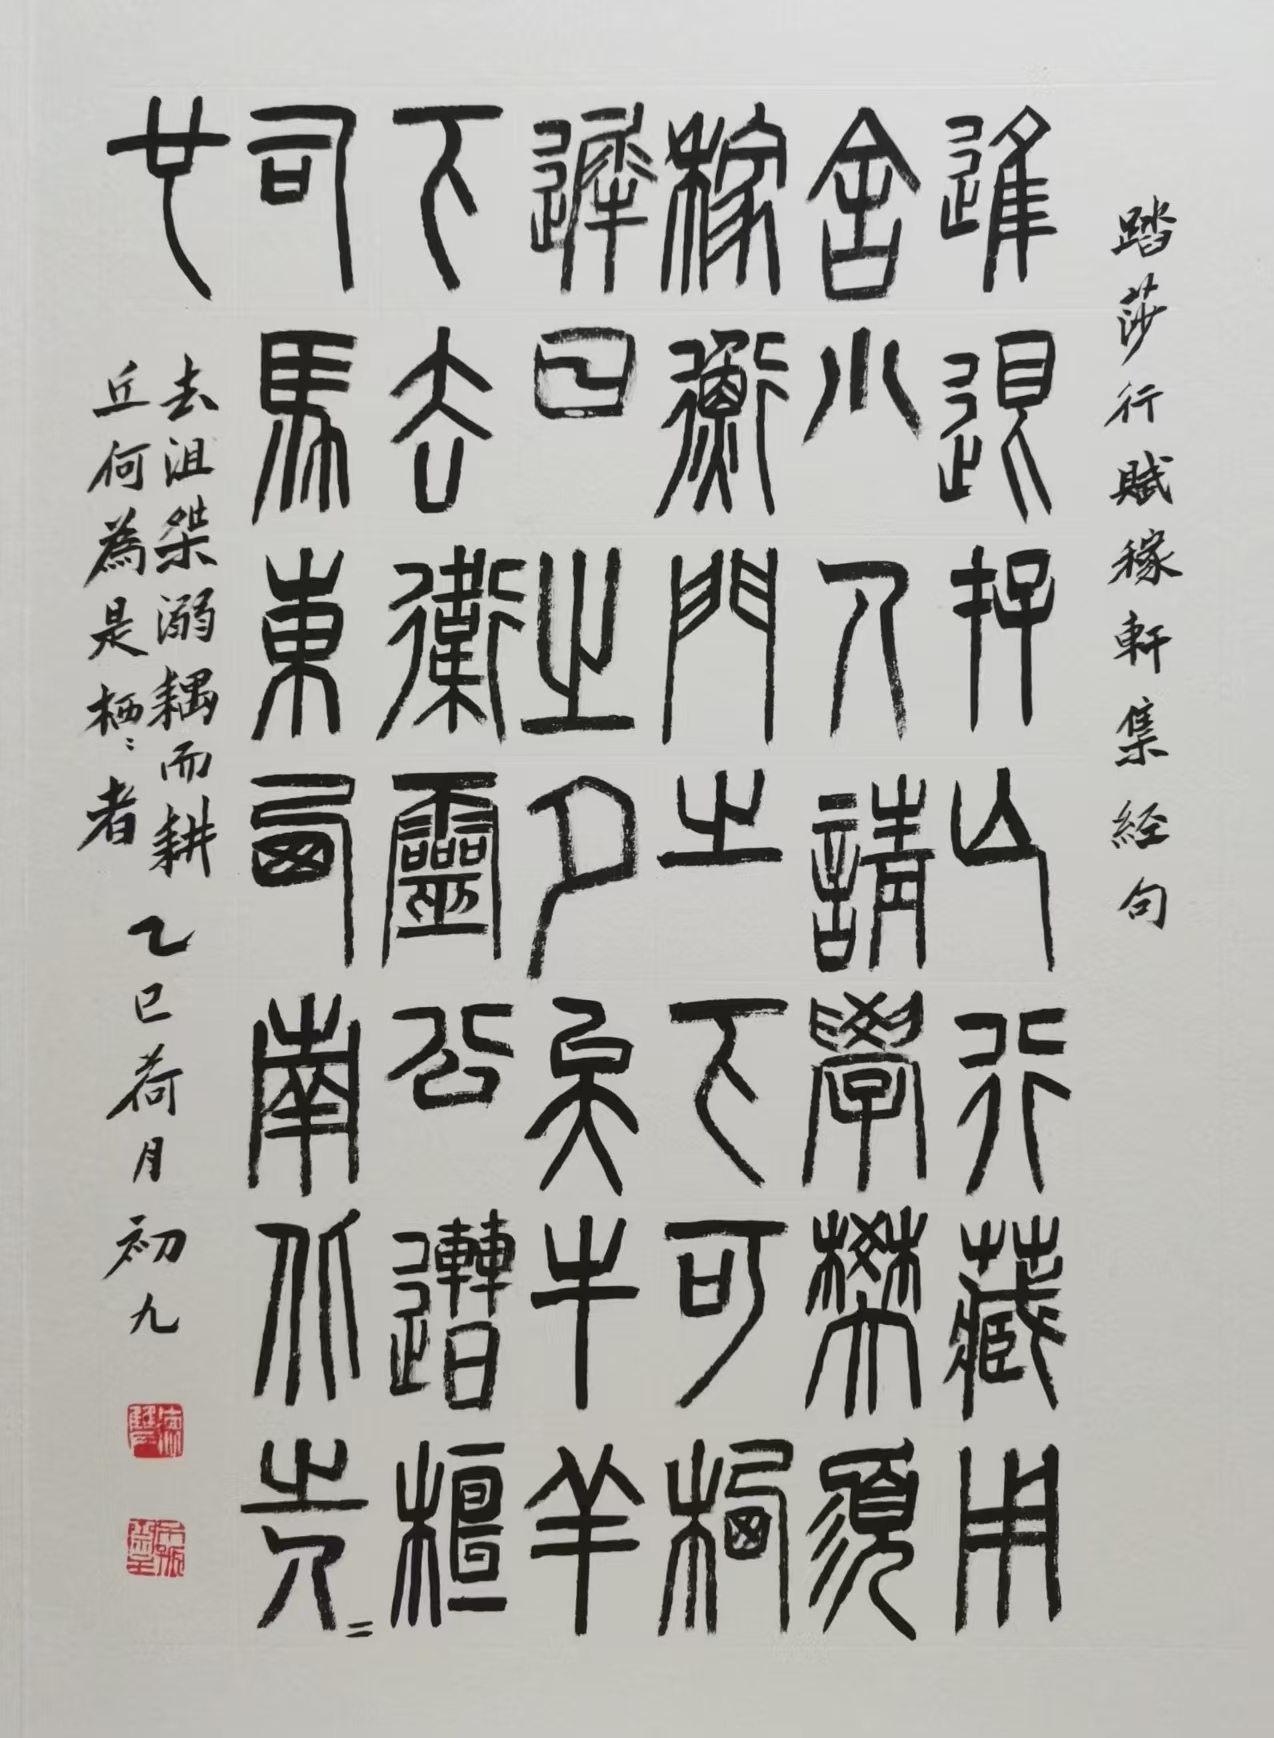 踏莎行賦稼軒集经句
進退存亡行藏用
舍小人請學樊須
稼衡門之下可栖
遲日之夕矣牛羊
下去衛靈公遭桓
司馬東西南北之人
也
去沮桀溺耦而耕
丘何為是栖〻者
乙巳荷月初九